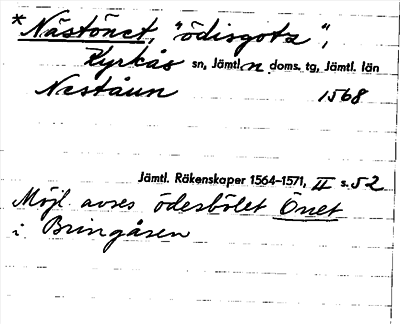 * Nästönet, "ödisgots",
Kyrkås sn, Jämtl. n. doms. tg, Jämtl. län
Neståun 1568
Jämtl. Räkenskaper 1564–1571, II s. 52
Möjl avses ödesbölet Önet
i Bringåsen